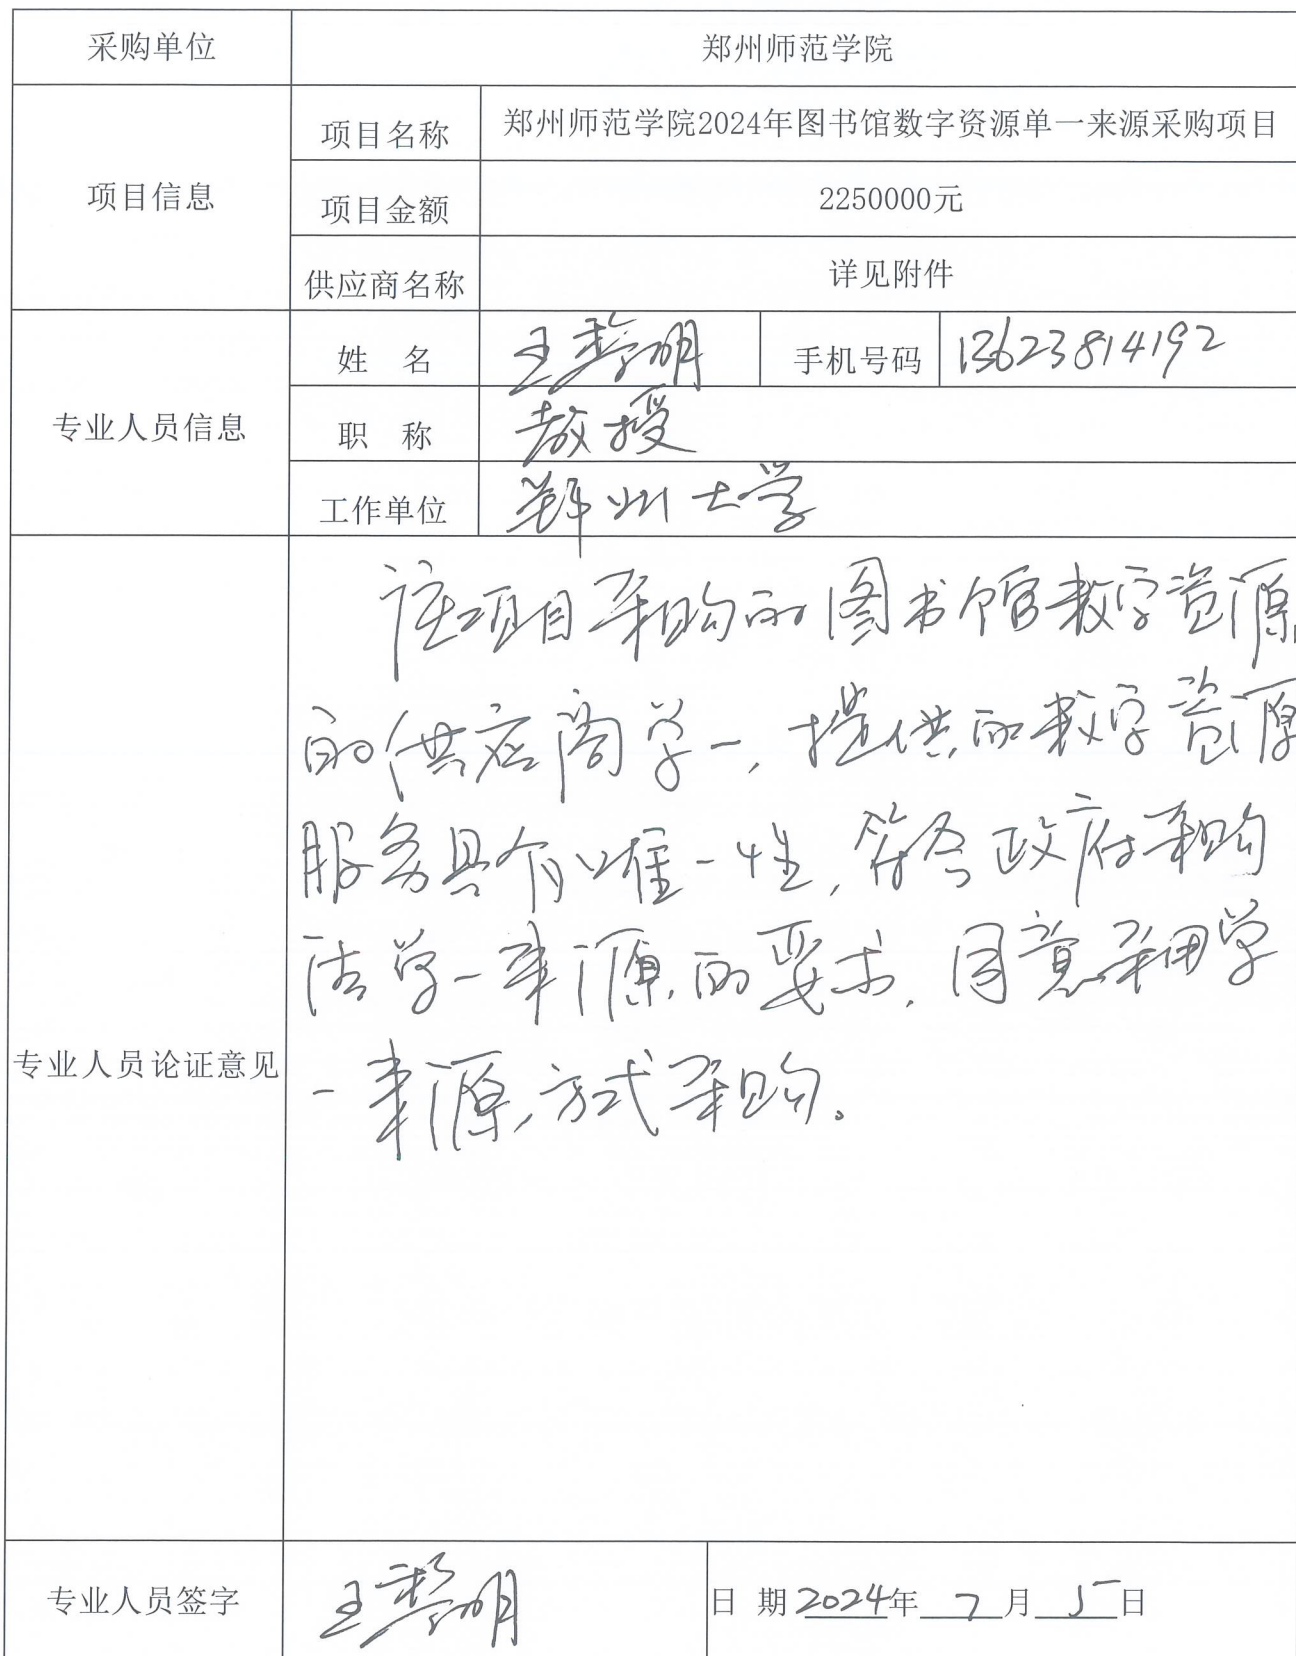 采购单位 郑州师范学院
项目信息
项目名称 郑州师范学院2024年图书馆数字资源单一来源采购项目
项目金额 2250000元
供应商名称 详见附件
专业人员信息
姓 名 王黎明 手机号码 13623814192
职 称 教授
工作单位 郑州大学
该项目采购的图书馆数字资源
的供应商单一,提供的数字资源
服务具有唯一性,符合政府采购
法单一来源的要求,同意采用单
一来源方式采购。
专业人员论证意见
专业人员签字 王黎明 日 期 2024年 7 月 5 日